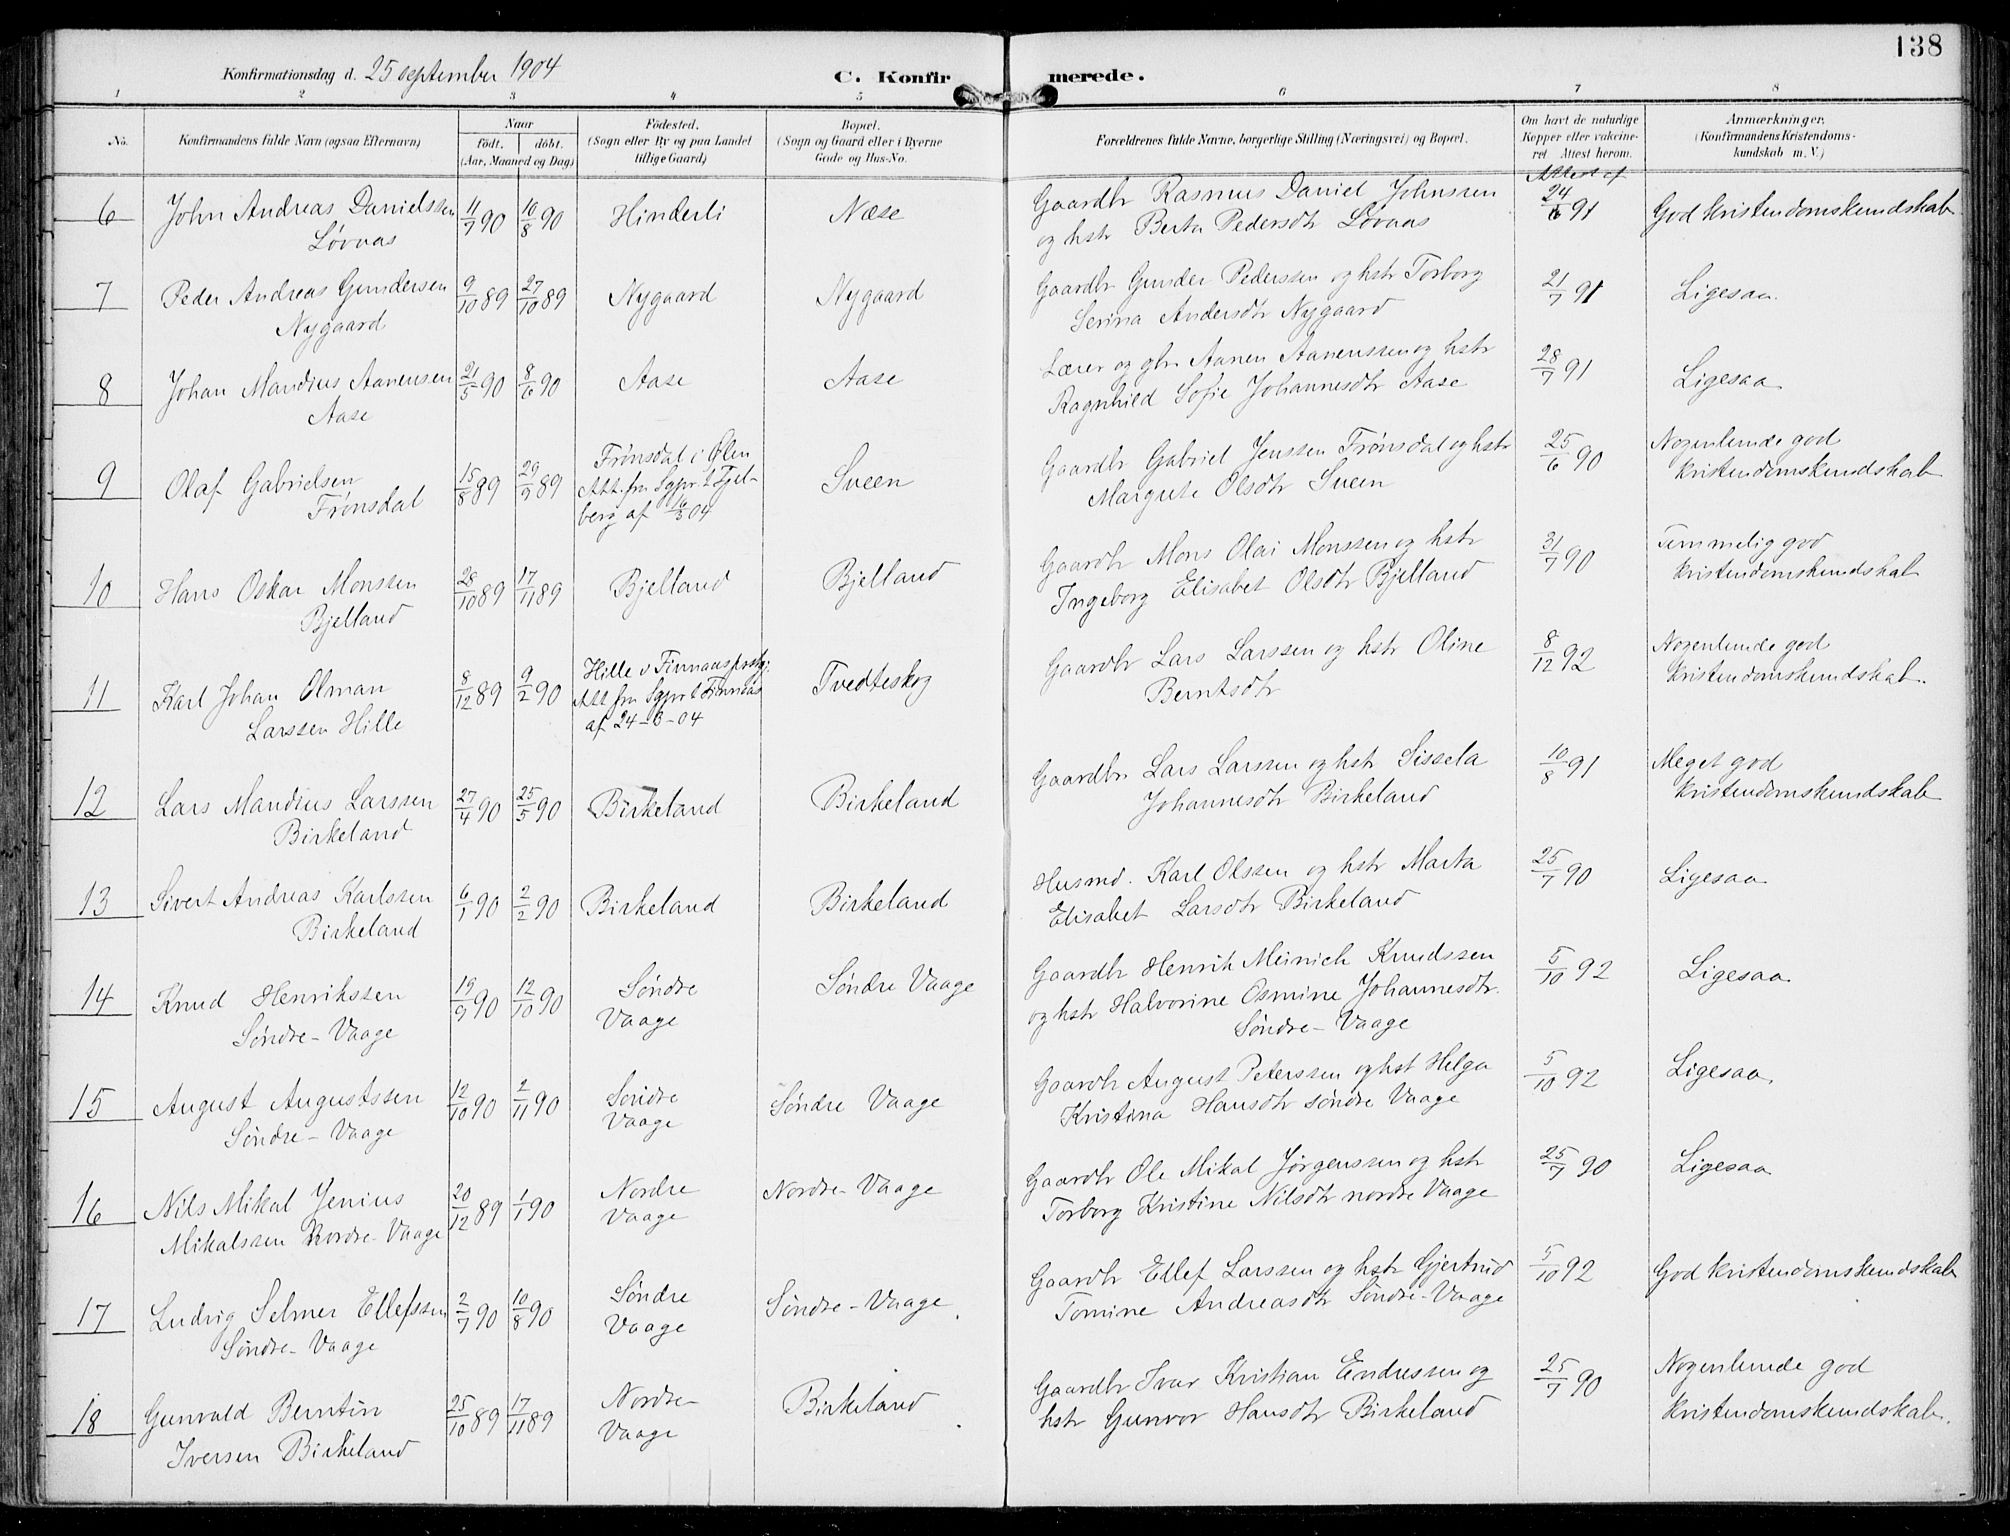 138
Konfirmationsdag d. 25 september 1904
C. Konfirmerede.
1 2 3 4 5 6 7 8
No. | Konfirmandens fulde Navn (ogsaa Efternavn) | Naar født. døbt. (Aar, Maaned og Dag) | Fødested. (Sogn eller By og paa Landet tillige Gaard) | Bopæl. (Sogn og Gaard eller i Byerne Gade og Hus-No. | Forældrenes fulde Navne, borgerlige Stilling (Næringsvei) og Bopæl. | Om havt de naturlige Kopper eller vakcineret. Attest herom. | Anmærkninger. (Konfirmandens Kristendomskundskab m. V.)
6 | John Andreas Danielssen Løvaas | 11/7 90 | 10/8 90 | Hinderli | Næse | Gaardbr Rasmus Daniel Johnssen og hstr Berta Pedersdtr Løvaas | Attest af 24/6 91 | God kristendomskundskab
7 | Peder Andreas Gundersen Nygaard | 9/10 89 | 27/10 89 | Nygaard | Nygaard | Gaardbr Gunder Pederssen og hstr Torborg Serina Andersdtr Nygaard | 21/7 91 | Ligesaa
8 | Johan Mandius Aanensen Aase | 21/5 90 | 8/6 90 | Aase | Aase | Lærer og gbr. Aanen Aanenssen og hstr Ragnhild Sofie Johannesdtr Aase | 28/7 91 | Ligesaa
9 | Olaf Gabrielsen Frønsdal | 15/8 89 | 29/9 89 | Frønsdal i Ølen Att. fra Sgpr t Fjelberg af 16/3 04 | Sveen | Gaardbr Gabriel Jenssen Frønsdal og hstr Margrete Olsdtr Sveen | 25/6 90 | Nogenlunde god kristendomskundskab
10 | Hans Oskar Monssen Bjelland | 28/10 89 | 17/11 89 | Bjelland | Bjelland | Gaardbr Mons Olai Monssen og hstr Ingeborg Elisabet Olsdtr Bjelland | 31/7 90 | Temmelig god kristendomskundskab
11 | Karl Johan Olman Larssen Hille | 8/12 89 | 9/2 90 | Hille i Finnaas prstgj. Att fra Sgpr t Finnaas af 24-3-04 | Tvedteskog | Gaardbr Lars Larssen og hstr Oline Berntsdtr | 8/12 92 | Nogenlunde god kristendomskundskab.
12 | Lars Mandius Larssen Birkeland | 27/4 90 | 25/5 90 | Birkeland | Birkeland | Gaardbr. Lars Larssen og hstr Sissela Johannesdtr Birkeland | 10/8 91 | Meget god kristendomskundskab
13 | Sivert Andreas Karlssen Birkeland | 6/1 90 | 2/2 90 | Birkeland | Birkeland | Husmd. Karl Olssen og hstr Marta Elisabet Larsdtr Birkeland | 25/7 90 | Ligesaa
14 | Knud Henrikssen Søndre-Vaage | 19/9 90 | 12/10 90 | Søndre Vaage | Søndre Vaage | Gaardbr Henrik Meinich Knudssen og hstr Halvorine Osmine Johannesdtr. Søndre-Vaage | 5/10 92 | Ligesaa
15 | August Augustssen Søndre-Vaage | 12/10 90 | 2/11 90 | Søndre Vaage | Søndre Vaage | Gaardbr August Peterssen og hst Helga Kristina Hansdtr søndre Vaage | 5/10 92 | Ligesaa
16 | Nils Mikal Jenius Mikalssen Nordre-Vaage | 20/12 89 | 1/1 90 | Nordre Vaage | Nordre-Vaage | Gaardbr Ole Mikal Jørgenssen og hstr Torborg Kristine Nilsdtr nordre Vaage | 25/7 90 | Ligesaa
17 | Ludvig Selmer Ellefssen Søndre-Vaage | 2/7 90 | 10/8 90 | Søndre Vaage | Søndre-Vaage | Gaardbr Ellef Larssen og hstr Gjertrud Tomine Andreasdtr Søndre-Vaage | 5/10 92 | God kristendomskundskab
18 | Gunvald Berntin Iversen Birkeland | 25/10 89 | 17/11 89 | Nordre Vaage | Birkeland | Gaardbr Ivar Kristian Endressen og hstr Gunvor Hansdtr Birkeland | 25/7 90 | Nogenlunde god kristendomskundskab.